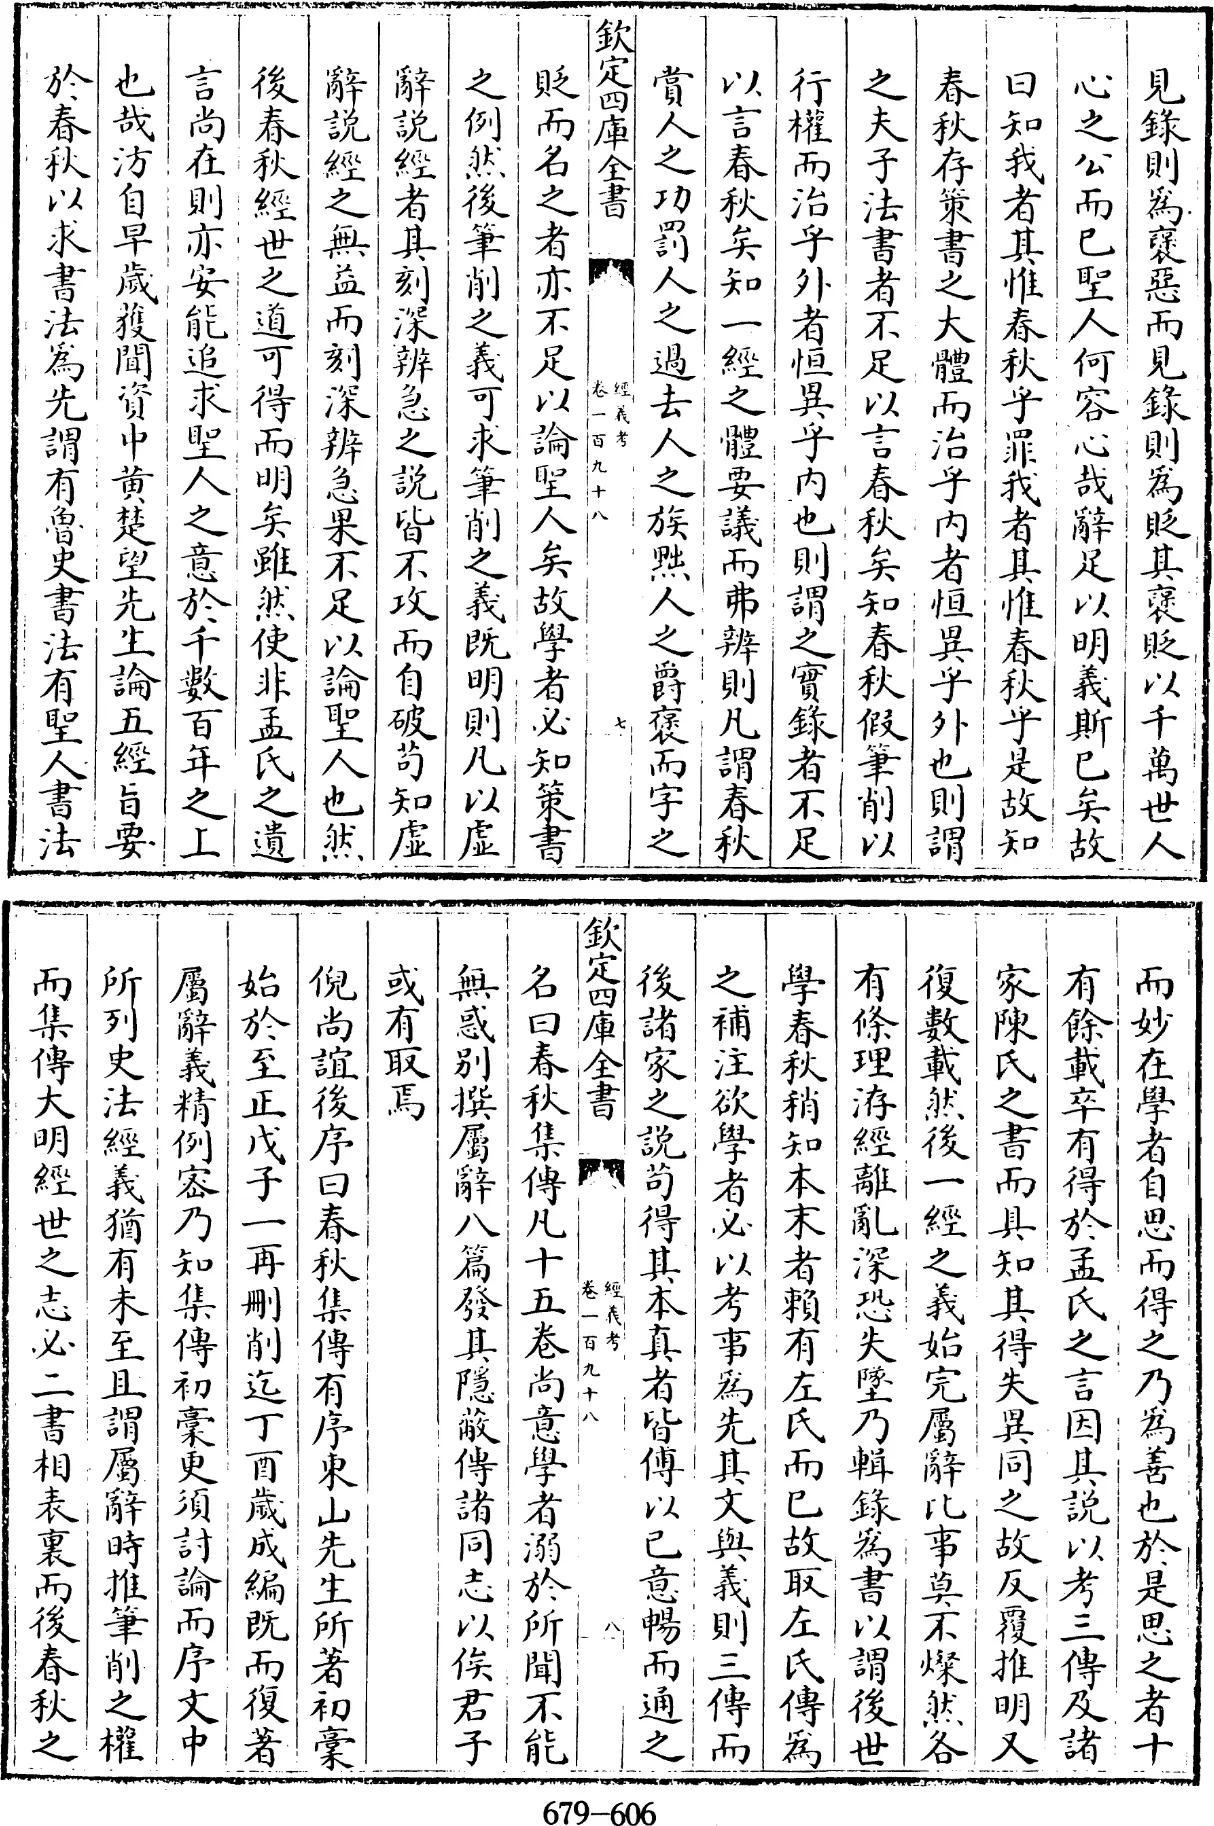 見錄則爲襃惡而見錄則爲貶其襃貶以千萬世人
心之公而已聖人何容心哉辭足以明義斯已矣故
曰知我者其惟春秋乎罪我者其惟春秋乎是故知
春秋存策書之大體而治乎内者恒異乎外也則謂
之夫子法書者不足以言春秋矣知春秋假筆削以
行權而治乎外者恒異乎内也則謂之實錄者不足
以言春秋矣知一經之體要議而弗辨則凡謂春秋
賞人之功罰人之過去人之族黜人之爵襃而字之
欽定四庫全書
經義考
卷一百九十八
七
貶而名之者亦不足以論聖人矣故學者必知策書
之例然後筆削之義可求筆削之義既明則凡以虛
辭説經者其刻深辨急之説皆不攻而自破苟知虛
辭説經之無益而刻深辨急果不足以論聖人也然
後春秋經世之道可得而明矣雖然使非孟氏之遺
言尚在則亦安能追求聖人之意於千數百年之上
也哉汸自早歲獲聞資中黄楚望先生論五經旨要
於春秋以求書法爲先謂有魯史書法有聖人書法
而妙在學者自思而得之乃爲善也於是思之者十
有餘載卒有得於孟氏之言因其説以考三傳及諸
家陳氏之書而具知其得失異同之故反覆推明又
復數載然後一經之義始完屬辭比事莫不燦然各
有條理洊經離亂深恐失墜乃輯錄爲書以謂後世
學春秋稍知本末者賴有左氏而已故取左氏傳爲
之補注欲學者必以考事爲先其文與義則三傳而
後諸家之説苟得其本真者皆傅以已意暢而通之
欽定四庫全書
經義考
卷一百九十八
八
名曰春秋集傳凡十五卷尚意學者溺於所聞不能
無惑别撰屬辭八篇發其隱蔽傳諸同志以俟君子
或有取焉
倪尚誼後序曰春秋集傳有序東山先生所著初稾
始於至正戊子一再刪削迄丁酉歲成編既而復著
屬辭義精例宻乃知集傳初稾更須討論而序文中
所列史法經義猶有未至且謂屬辭時推筆削之權
而集傳大明經世之志必二書相表裏而後春秋之
679-606